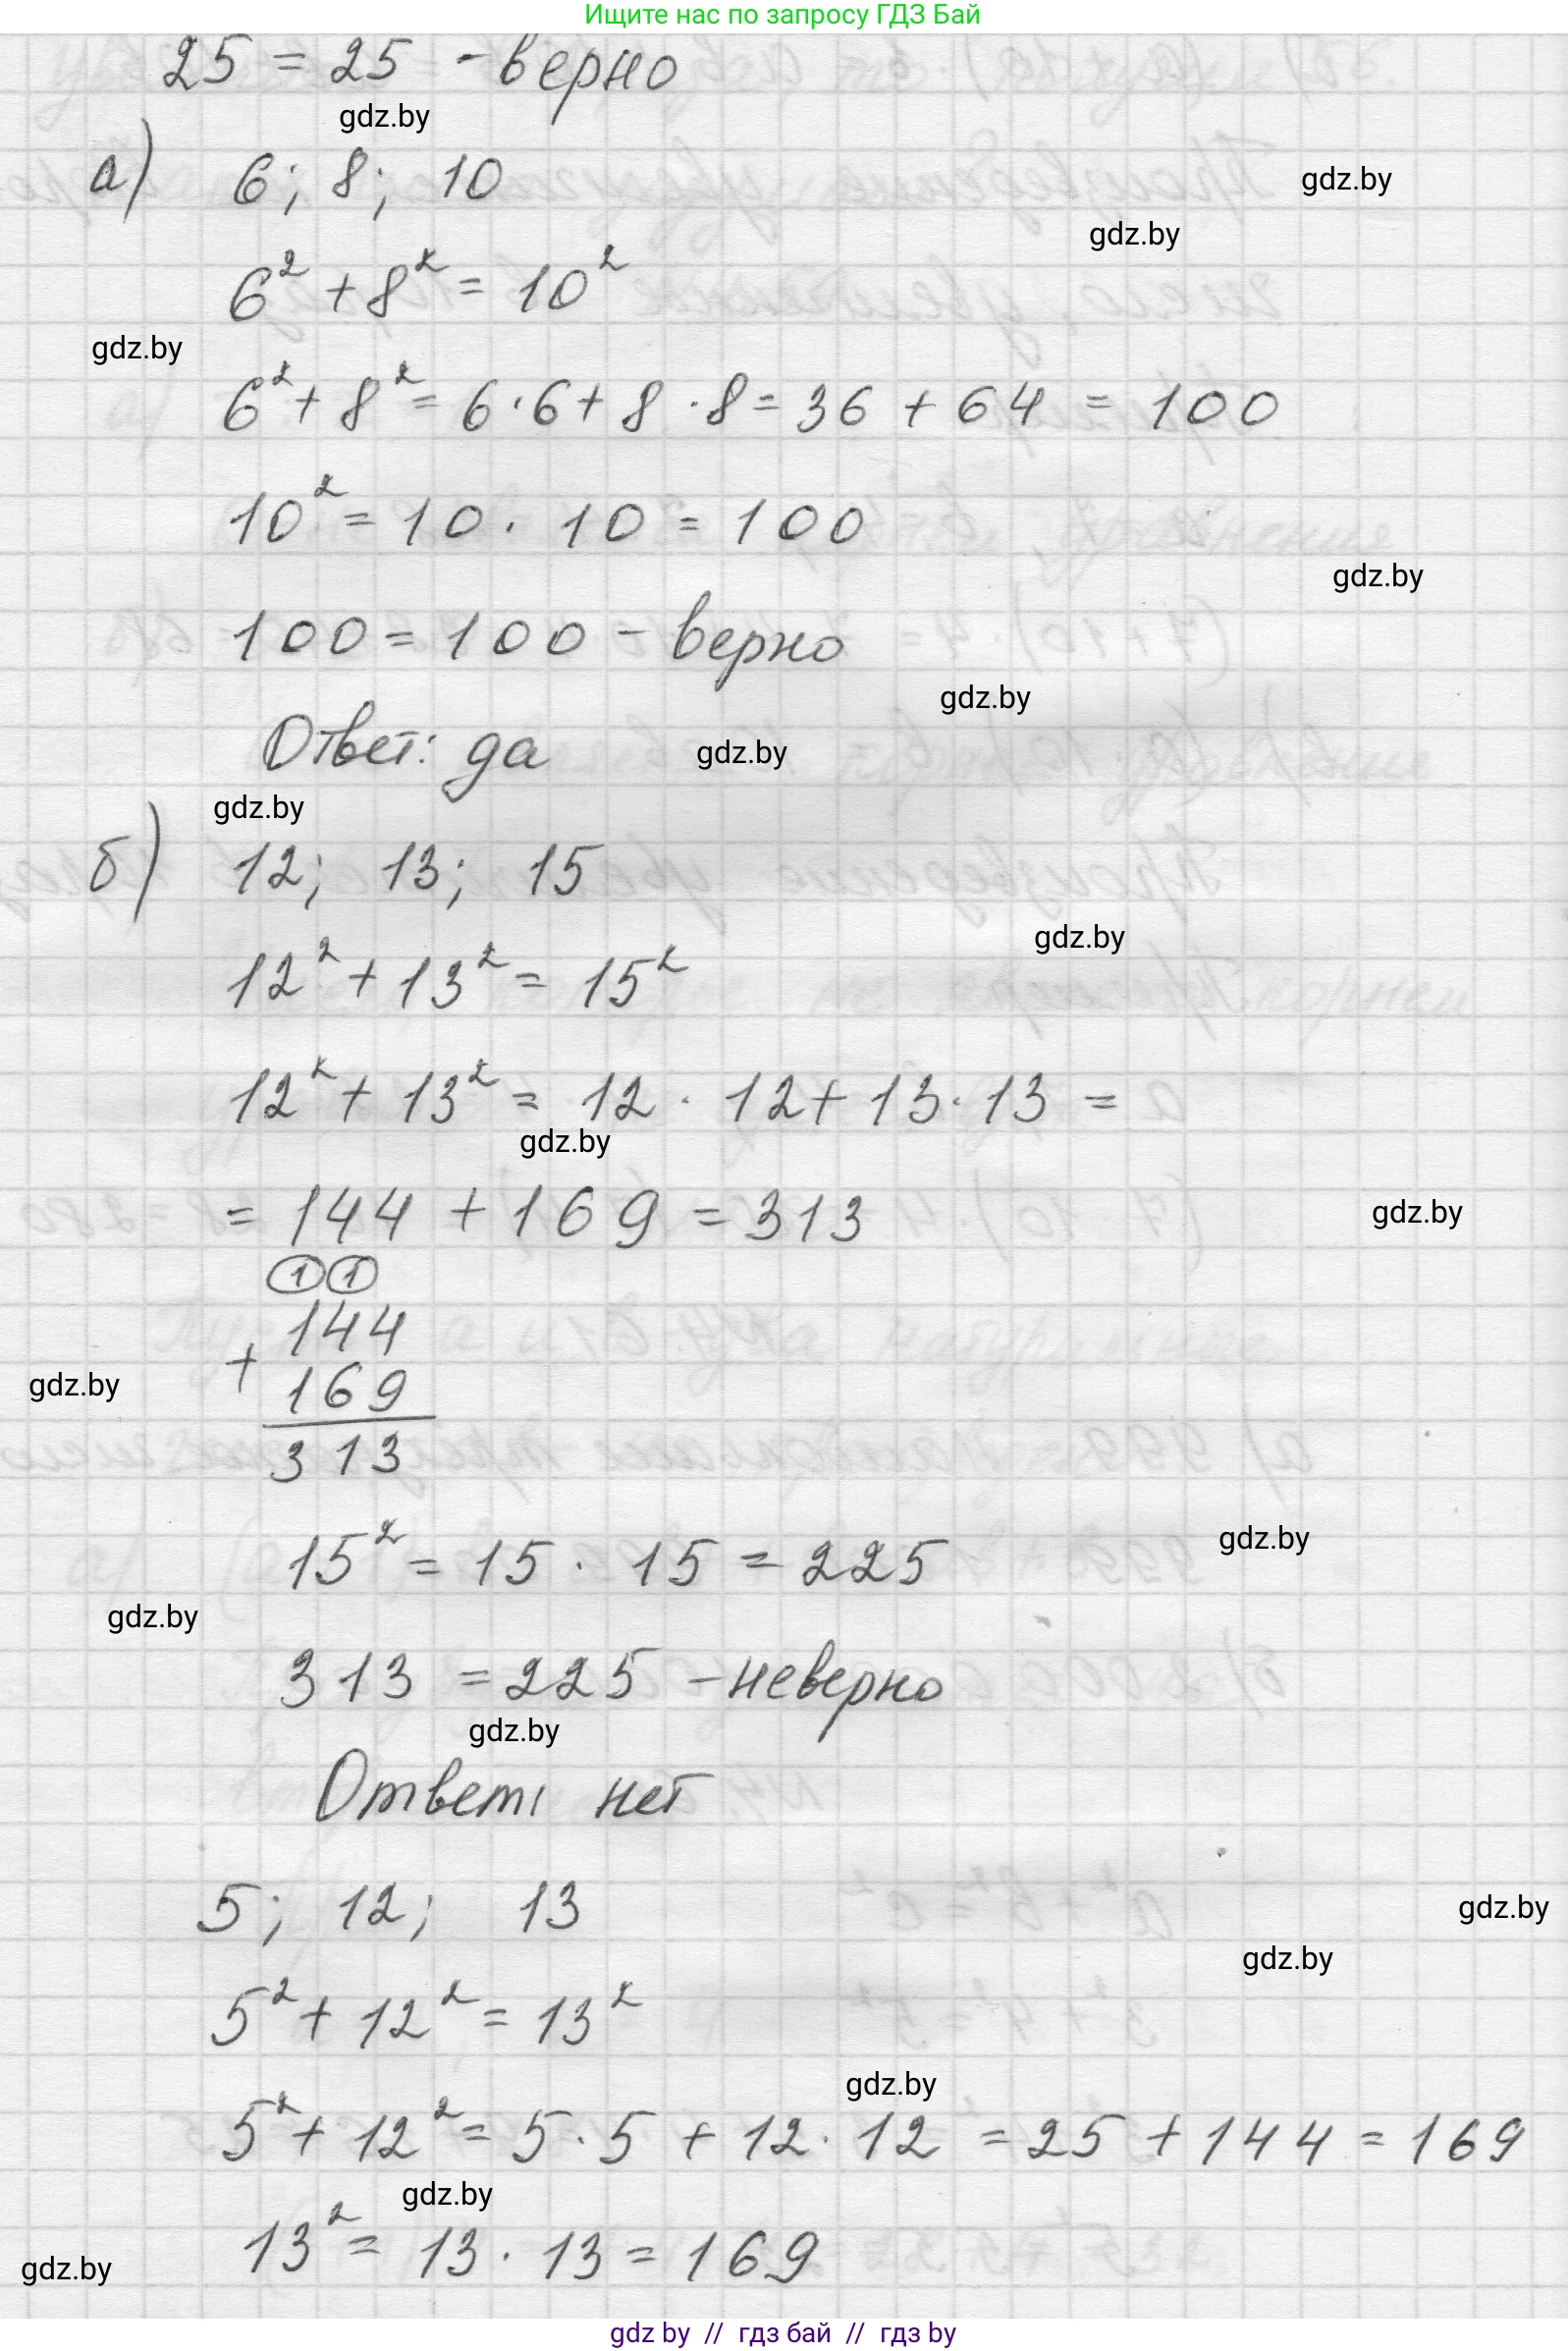 Ищите нас по запросу ГДЗ Бай
25 = 25 - верно
gdz.by
а) 6; 8; 10
gdz.by
gdz.by
6² + 8² = 10²
gdz.by
6² + 8² = 6 · 6 + 8 · 8 = 36 + 64 = 100
10² = 10 · 10 = 100
gdz.by
100 = 100 - верно
gdz.by
Ответ: да
gdz.by
gdz.by
б) 12; 13; 15
gdz.by
12² + 13² = 15²
12² + 13² = 12 · 12 + 13 · 13 =
gdz.by
= 144 + 169 = 313
gdz.by
1 1
144
+
gdz.by
169
313
gdz.by
15² = 15 · 15 = 225
gdz.by
313 = 225 - неверно
gdz.by
Ответ: нет
5; 12; 13
gdz.by
gdz.by
5² + 12² = 13²
gdz.by
5² + 12² = 5 · 5 + 12 · 12 = 25 + 144 = 169
gdz.by
13² = 13 · 13 = 169
gdz.by
gdz by // гдз бай // гдз by